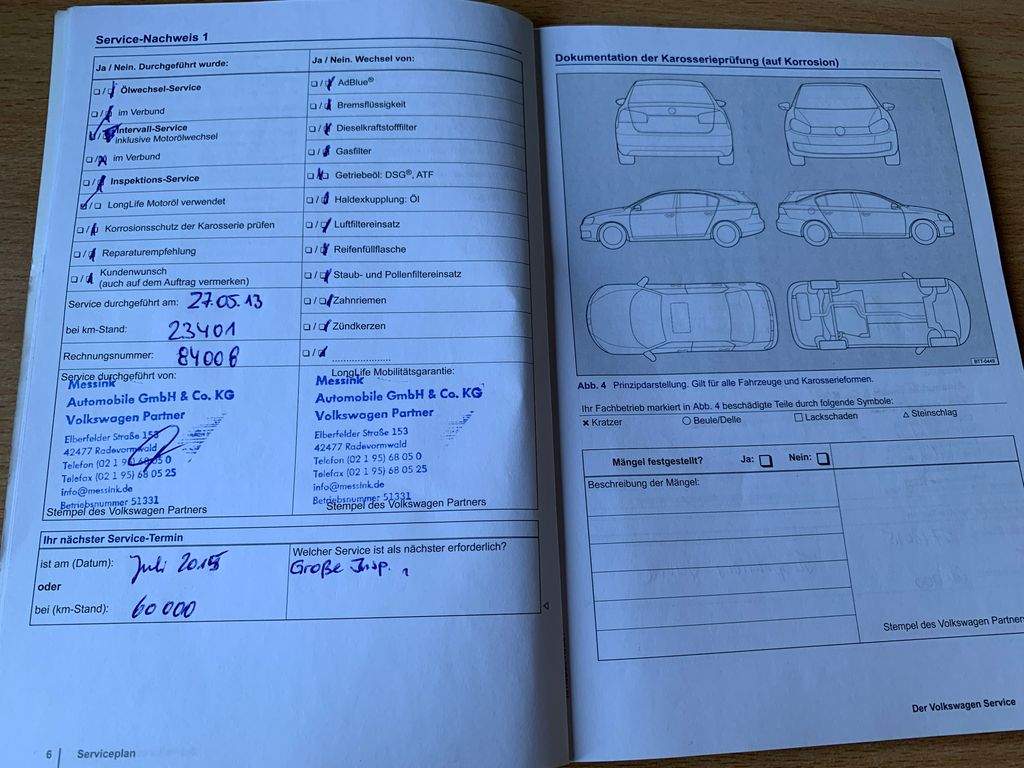 Service-Nachweis 1
Ja / Nein. Durchgeführt wurde:
Ja / Nein. Wechsel von:
Ölwechsel-Service
im Verbund
Intervall-Service
inklusive Motorölwechsel
im Verbund
Inspektions-Service
LongLife Motoröl verwendet
Korrosionsschutz der Karosserie prüfen
Reparaturempfehlung
Kundenwunsch
(auch auf dem Auftrag vermerken)
AdBlue®
Bremsflüssigkeit
Dieselkraftstofffilter
Gasfilter
Getriebeöl: DSG®, ATF
Haldexkupplung: Öl
Luftfiltereinsatz
Reifenfüllflasche
Staub- und Pollenfiltereinsatz
Zahnriemen
Zündkerzen
Service durchgeführt am: 27.05.13
bei km-Stand: 23401
Rechnungsnummer: 84006
Service durchgeführt von:
Messink
Automobile GmbH & Co. KG
Volkswagen Partner
Elberfelder Straße 153
42477 Radevormwald
Telefon (02 1 95) 68 05 0
Telefax (02 1 95) 68 05 25
info@messink.de
Betriebsnummer 51331
Stempel des Volkswagen Partners
LongLife Mobilitätsgarantie:
Messink
Automobile GmbH & Co. KG
Volkswagen Partner
Elberfelder Straße 153
42477 Radevormwald
Telefon (02 1 95) 68 05 0
Telefax (02 1 95) 68 05 25
info@messink.de
Betriebsnummer 51331
Stempel des Volkswagen Partners
Ihr nächster Service-Termin
ist am (Datum): Juli 2015
oder
bei (km-Stand): 60 000
Welcher Service ist als nächster erforderlich?
Große Insp.
6 | Serviceplan
Dokumentation der Karosserieprüfung (auf Korrosion)
BTT-0449
Abb. 4 Prinzipdarstellung. Gilt für alle Fahrzeuge und Karosserieformen.
Ihr Fachbetrieb markiert in Abb. 4 beschädigte Teile durch folgende Symbole:
Kratzer
Beule/Delle
Lackschaden
Steinschlag
Mängel festgestellt? Ja: Nein:
Beschreibung der Mängel:
Stempel des Volkswagen Partners
Der Volkswagen Service